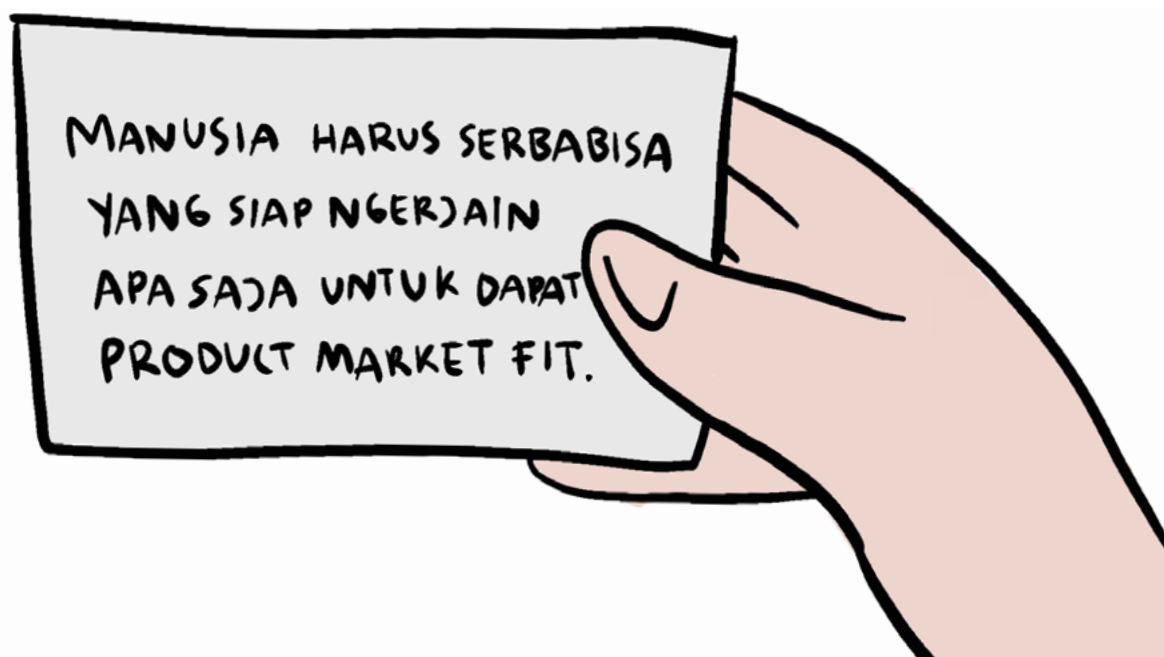 MANUSIA HARUS SERBABISA
YANG SIAP NGERJAIN
APA SAJA UNTUK DAPAT
PRODUCT MARKET FIT.